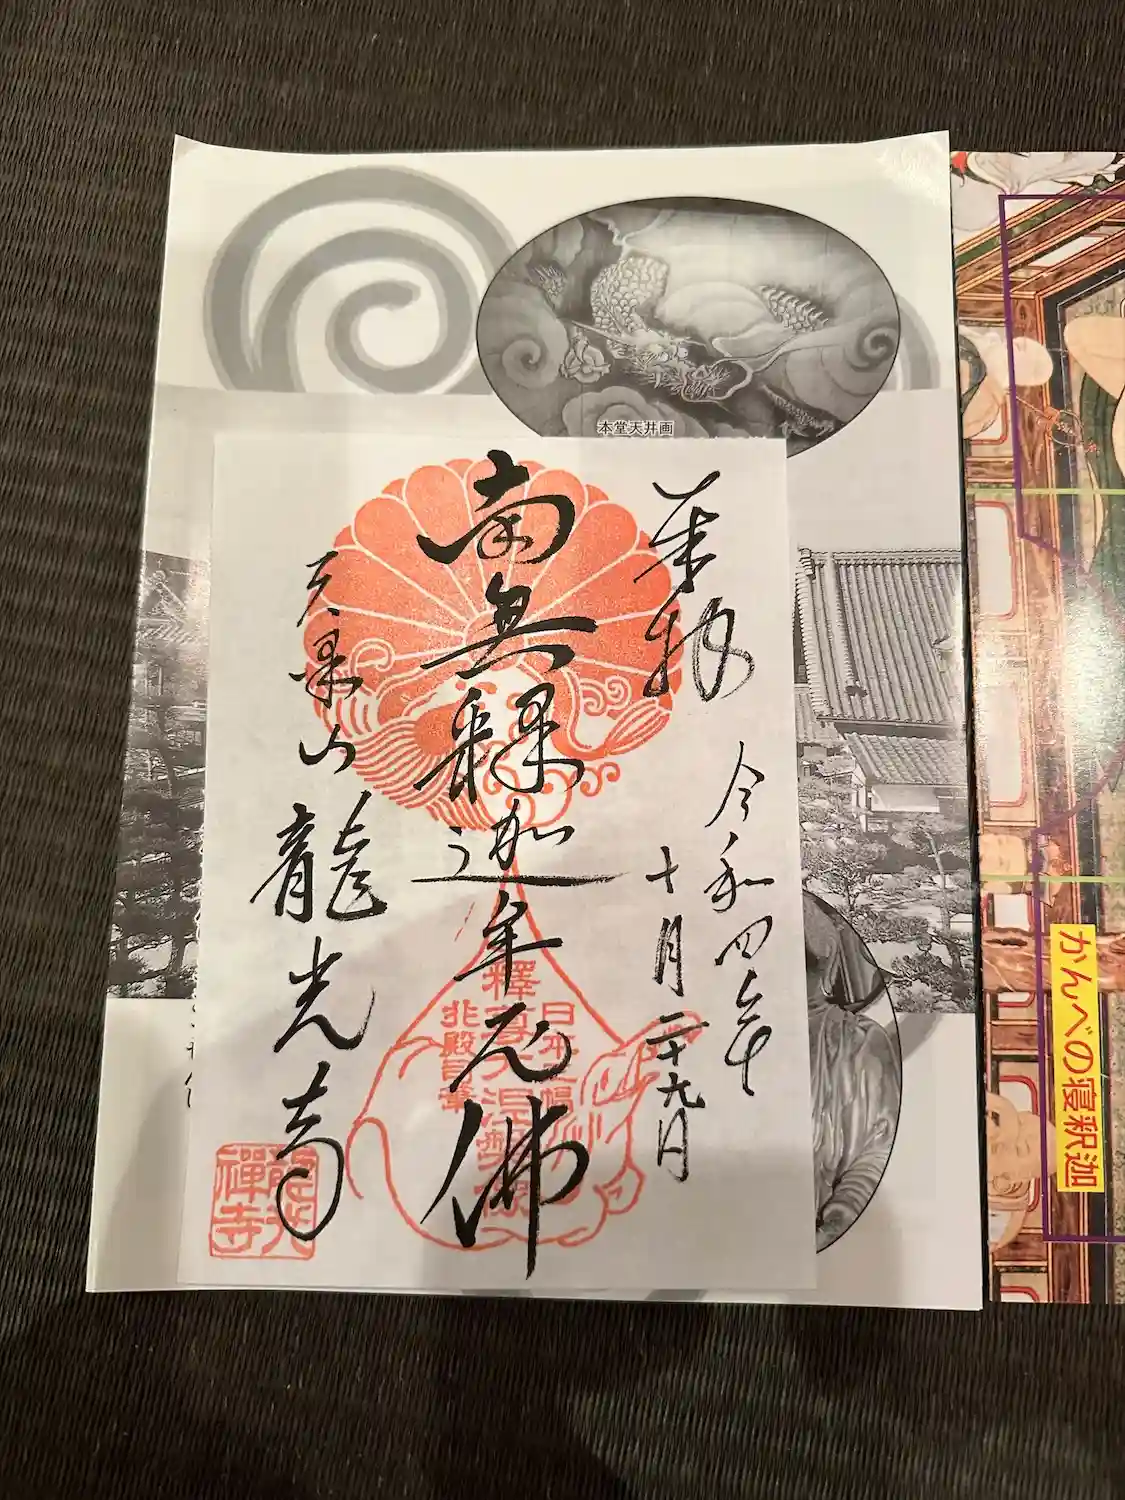 本堂天井画
奉拝
令和四年
十月二十九日
南無釋迦牟尼佛
天澤山
龍光寺
龍光禪寺
釋尊大涅槃像
兆殿司筆
かんべの寝釈迦